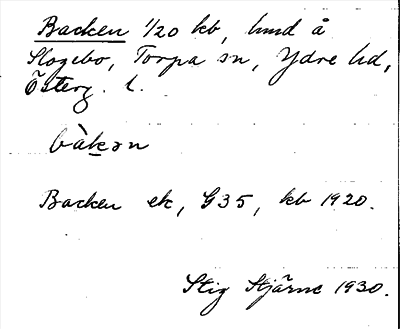 Backen 1/20 kb, hmd å
Slogebo, Torpa sn, Ydre hd,
Österg. l.
bàkən
Backen ek, G35, kb 1920.
Stig Stjärne 1930.